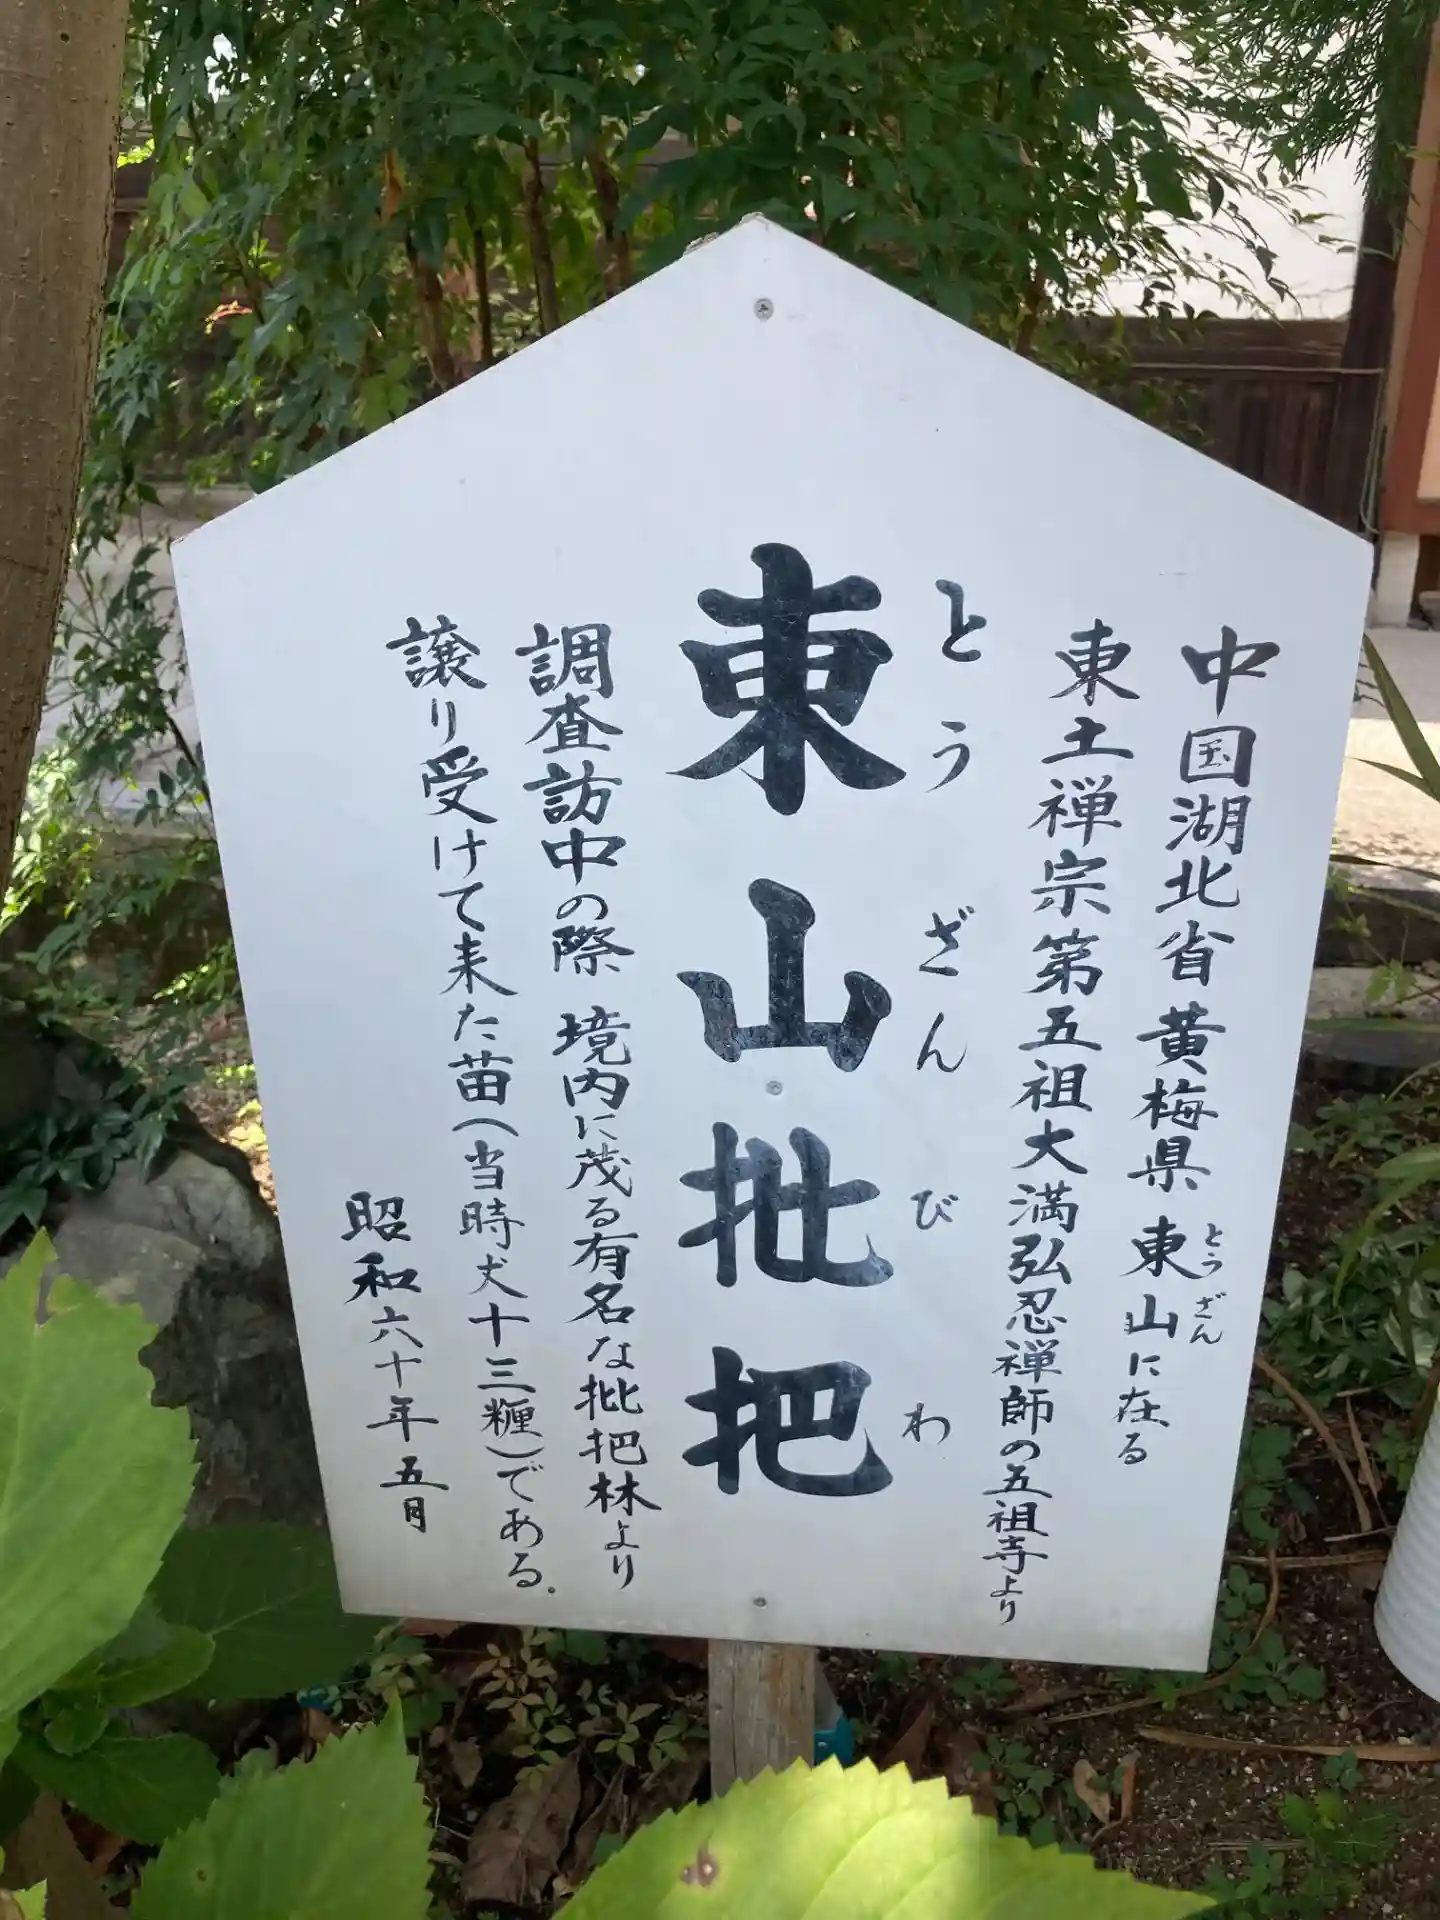 中国湖北省黄梅県 東山に在る
とうざん
東土禅宗第五祖大満弘忍禅師の五祖寺より
とうざんびわ
東山批把
調査訪中の際 境内に茂る有名な批把林より
譲り受けて来た苗(当時丈十三糎)である.
昭和六十年五月